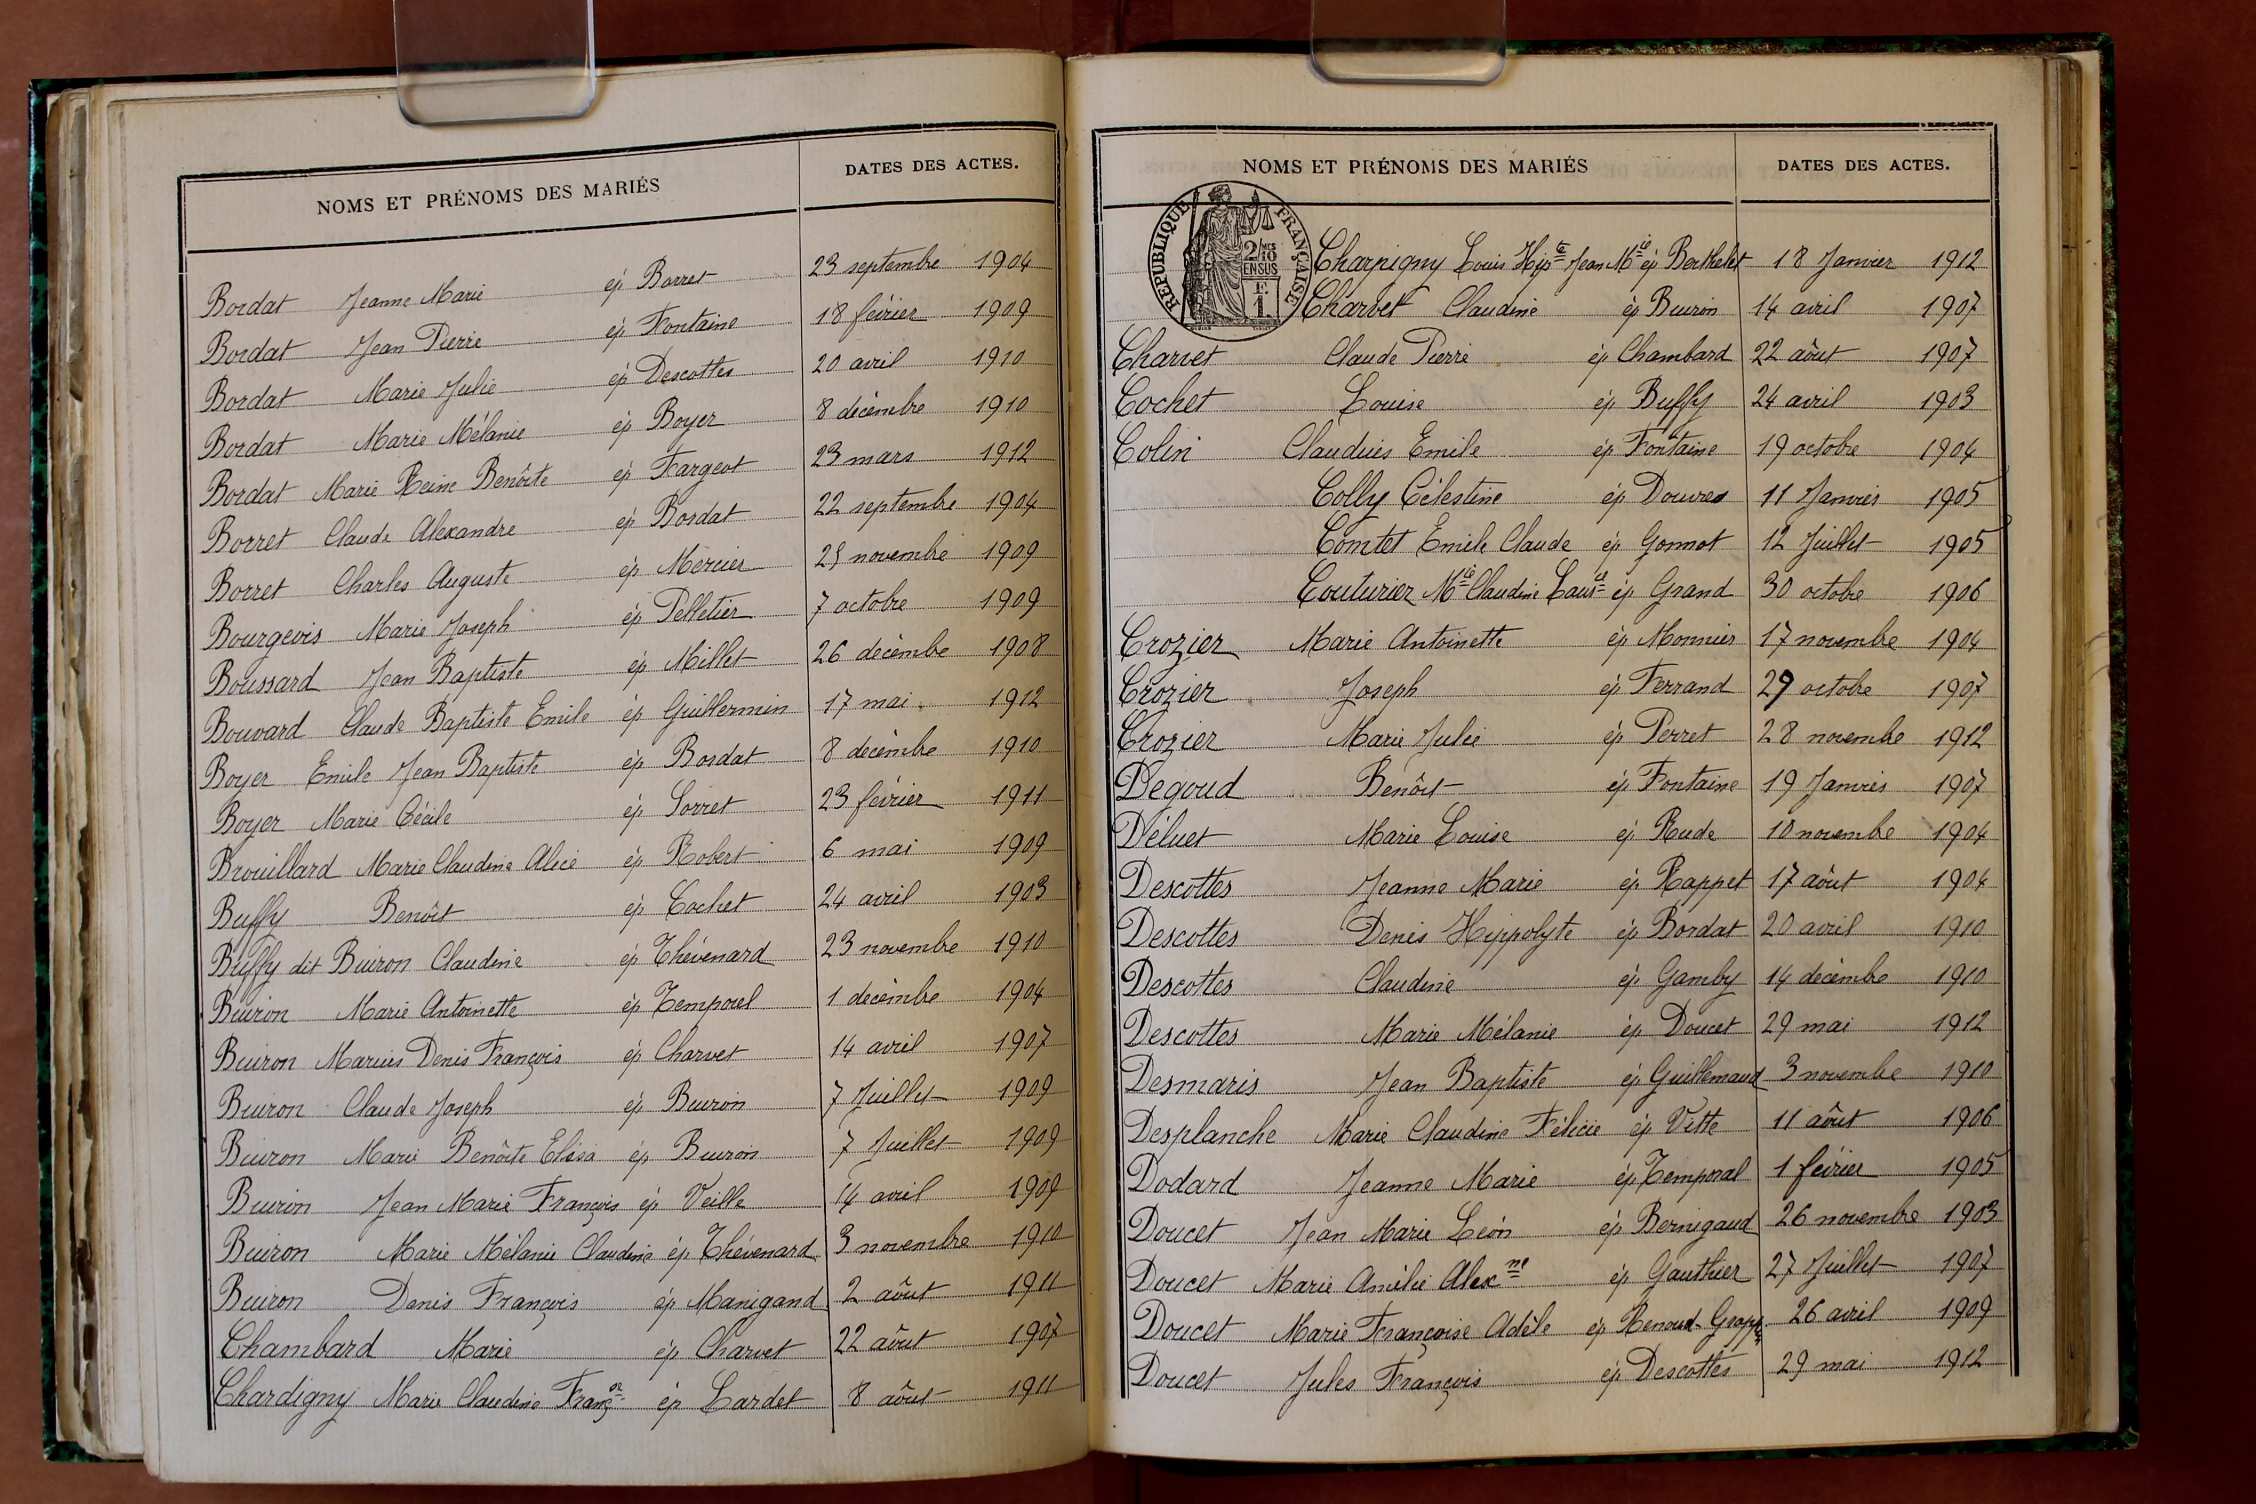 NOMS ET PRÉNOMS DES MARIÉS DATES DES ACTES.
Bordat Jeanne Marie ép Borret 23 septembre 1904
Bordat Jean Pierre ép Fontaine 18 février 1909
Bordat Marie Julie ép Descottes 20 avril 1910
Bordat Marie Mélanie ép Boyer 8 décembre 1910
Bordat Marie Reine Benôite ép Fargeot 23 mars 1912
Borret Claude Alexandre ép Bordat 22 septembre 1904
Borret Charles Auguste ép Mercier 25 novembre 1909
Bourgeois Marie Joseph ép Pelletier 7 octobre 1909
Boussard Jean Baptiste ép Millet 26 décembre 1908
Bouvard Claude Baptiste Emile ép Guillermin 17 mai 1912
Boyer Emile Jean Baptiste ép Bordat 8 décembre 1910
Boyer Marie Cécile ép Sorret 23 février 1911
Brouillard Marie Claudine Alice ép Robert 6 mai 1909
Buffy Benôit ép Cochet 24 avril 1903
Buffy dit Buiron Claudine ép Thévenard 23 novembre 1910
Buiron Marie Antoinette ép Temporel 1 décembre 1904
Buiron Marius Denis François ép Charvet 14 avril 1907
Buiron Claude Joseph ép Buiron 7 Juillet 1909
Buiron Marie Benôite Elisa ép Buiron 7 Juillet 1909
Buiron Jean Marie François ép Veille 14 avril 1909
Buiron Marie Mélanie Claudine ép Thévenard 3 novembre 1910
Buiron Denis François ép Manigand 2 aôut 1911
Chambard Marie ép Charvet 22 aôut 1907
Chardigny Marie Claudine Franç.se ép Lardet 8 aôut 1911
NOMS ET PRÉNOMS DES MARIÉS DATES DES ACTES.
RÉPUBLIQUE FRANÇAISE
2/10 MES
EN SUS
F.
1.
Charpigny Louis Hip.te Jean M.ie ép Berthelet 18 Janvier 1912
Charvet Claudine ép Buiron 14 avril 1907
Charvet Claude Pierre ép Chambard 22 aôut 1907
Cochet Louise ép Buffy 24 avril 1903
Colin Claudius Emile ép Fontaine 19 octobre 1904
Colly Célestine ép Douvres 11 Janvier 1905
Comtet Emile Claude ép Gonnot 12 Juillet 1905
Couturier M.ie Claudine Laur.ce ép Grand 30 octobre 1906
Crozier Marie Antoinette ép Monnier 17 novembre 1904
Crozier Joseph ép Ferrand 29 octobre 1907
Crozier Marie Julie ép Perret 28 novembre 1912
Dégoud Benôit ép Fontaine 19 Janvier 1907
Véluet Marie Louise ép Rude 10 novembre 1904
Descottes Jeanne Marie ép Rappet 17 aôut 1904
Descottes Denis Hippolyte ép Bordat 20 avril 1910
Descottes Claudine ép Gamby 14 décembre 1910
Descottes Marie Mélanie ép Doucet 29 mai 1912
Desmaris Jean Baptiste ép Guillemaud 3 novembre 1910
Desplanche Marie Claudine Félicie ép Vitte 11 aôut 1906
Dodard Jeanne Marie ép Temporal 1 février 1905
Doucet Jean Marie Léon ép Bernigaud 26 novembre 1903
Doucet Marie Amélie Alex.ne ép Gauthier 27 Juillet 1907
Doucet Marie Françoise Adèle ép Renoud-Grappe 26 avril 1909
Doucet Jules François ép Descottes 29 mai 1912